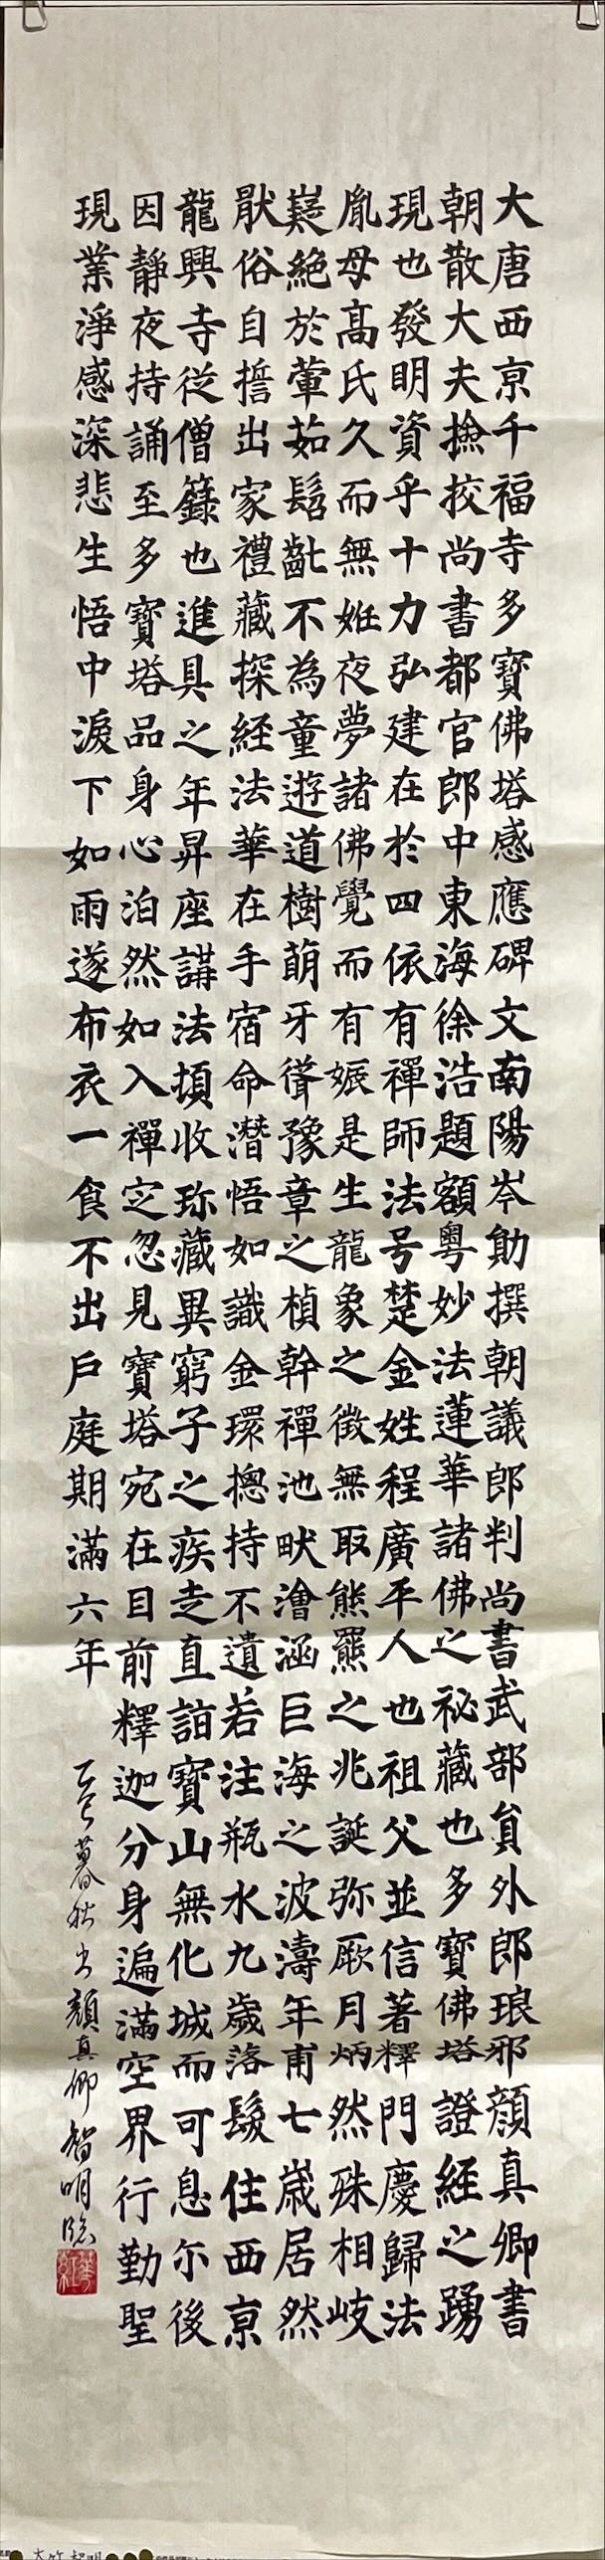 大唐西京千福寺多寶佛塔感應碑文南陽岑勛撰朝議郎判尚書武部員外郎琅邪顔真卿書
朝散大夫撿挍尚書都官郎中東海徐浩題額粤妙法蓮華諸佛之祕藏也多寶佛塔證經之踴
現也發明資乎十力弘建在於四依有禪師法号楚金姓程廣平人也祖父並信著釋門慶歸法
胤母髙氏久而無姙夜夢諸佛覺而有娠是生龍象之徵無取熊羆之兆誕弥厥月炳然殊相岐
嶷絶於葷茹髫齔不為童遊道樹萌牙聳豫章之楨幹禪池畎澮涵巨海之波濤年甫七歲居然
猒俗自誓出家禮藏探經法華在手宿命潛悟如識金環揔持不遺若注瓶水九歲落髮住西京
龍興寺從僧籙也進具之年昇座講法頓收珎藏異窮子之疾走直詣寶山無化城而可息尒後
因静夜持誦至多寶塔品身心泊然如入禪定忽見寶塔宛在目前釋迦分身遍滿空界行勤聖
現業淨感深悲生悟中淚下如雨遂布衣一食不出戶庭期滿六年
乙巳暮秋書顔真卿 智明臨